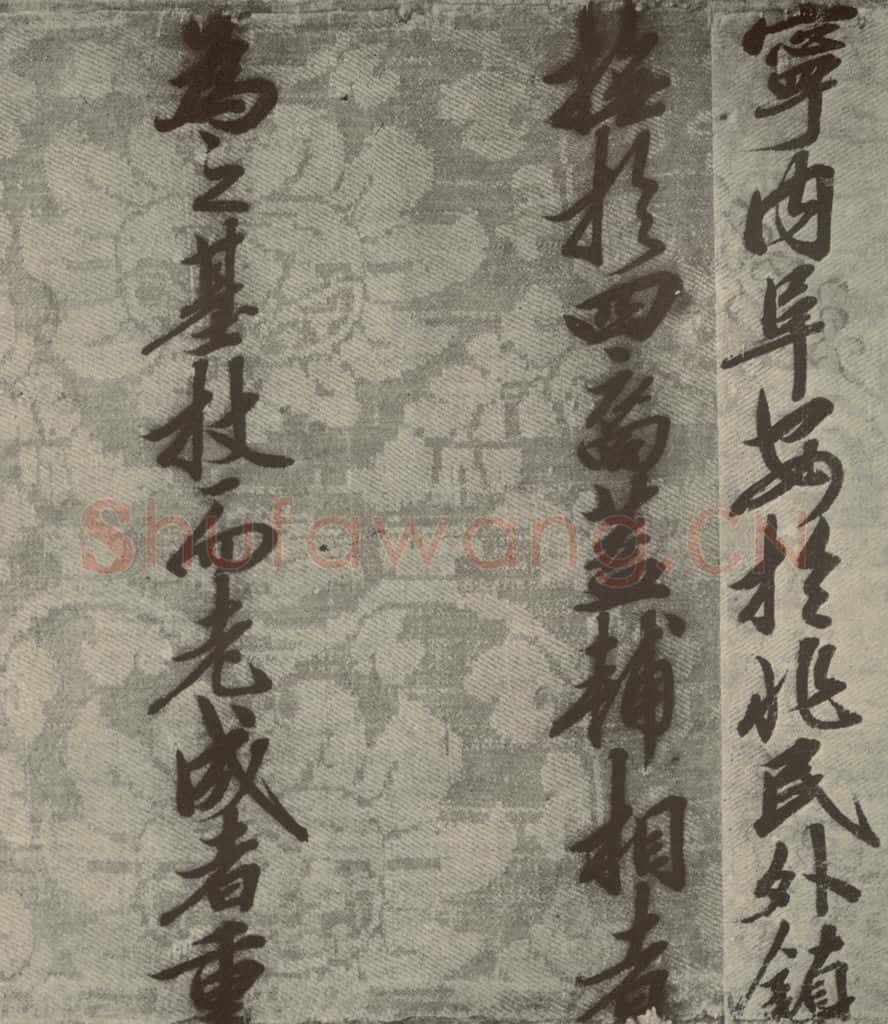 寧内阜安於兆民外鎮
撫於四裔蓋輔相者
為之基杖而老成者重
Shufawang.CN